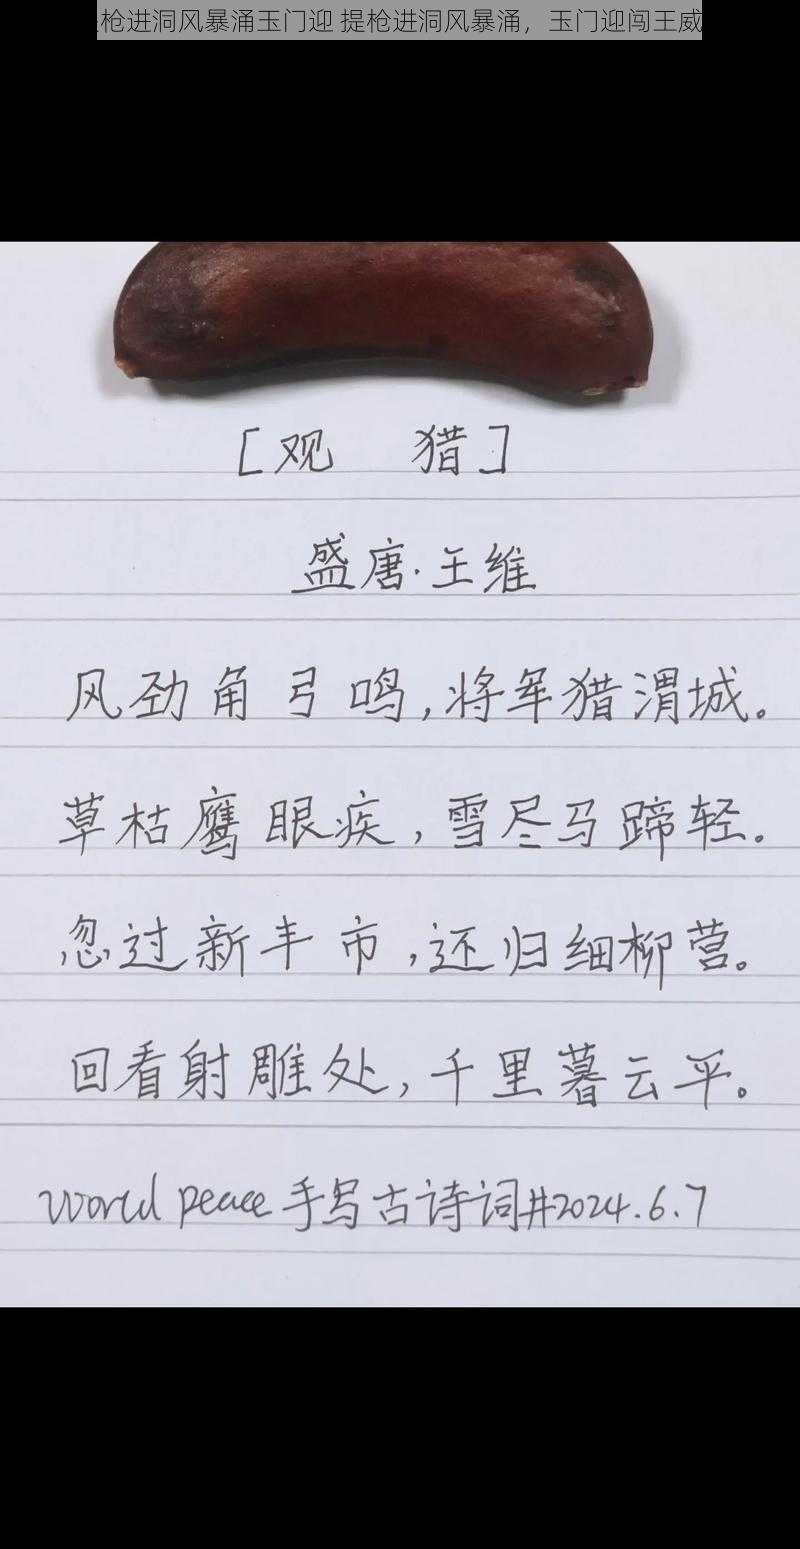 枪进洞风暴涌玉门迎 提枪进洞风暴涌，玉门迎闯王威
[观 猎]
盛唐·王维
风劲角弓鸣,将军猎渭城。
草枯鹰眼疾,雪尽马蹄轻。
忽过新丰市,还归细柳营。
回看射雕处,千里暮云平。
World peace手写古诗词#2024.6.7